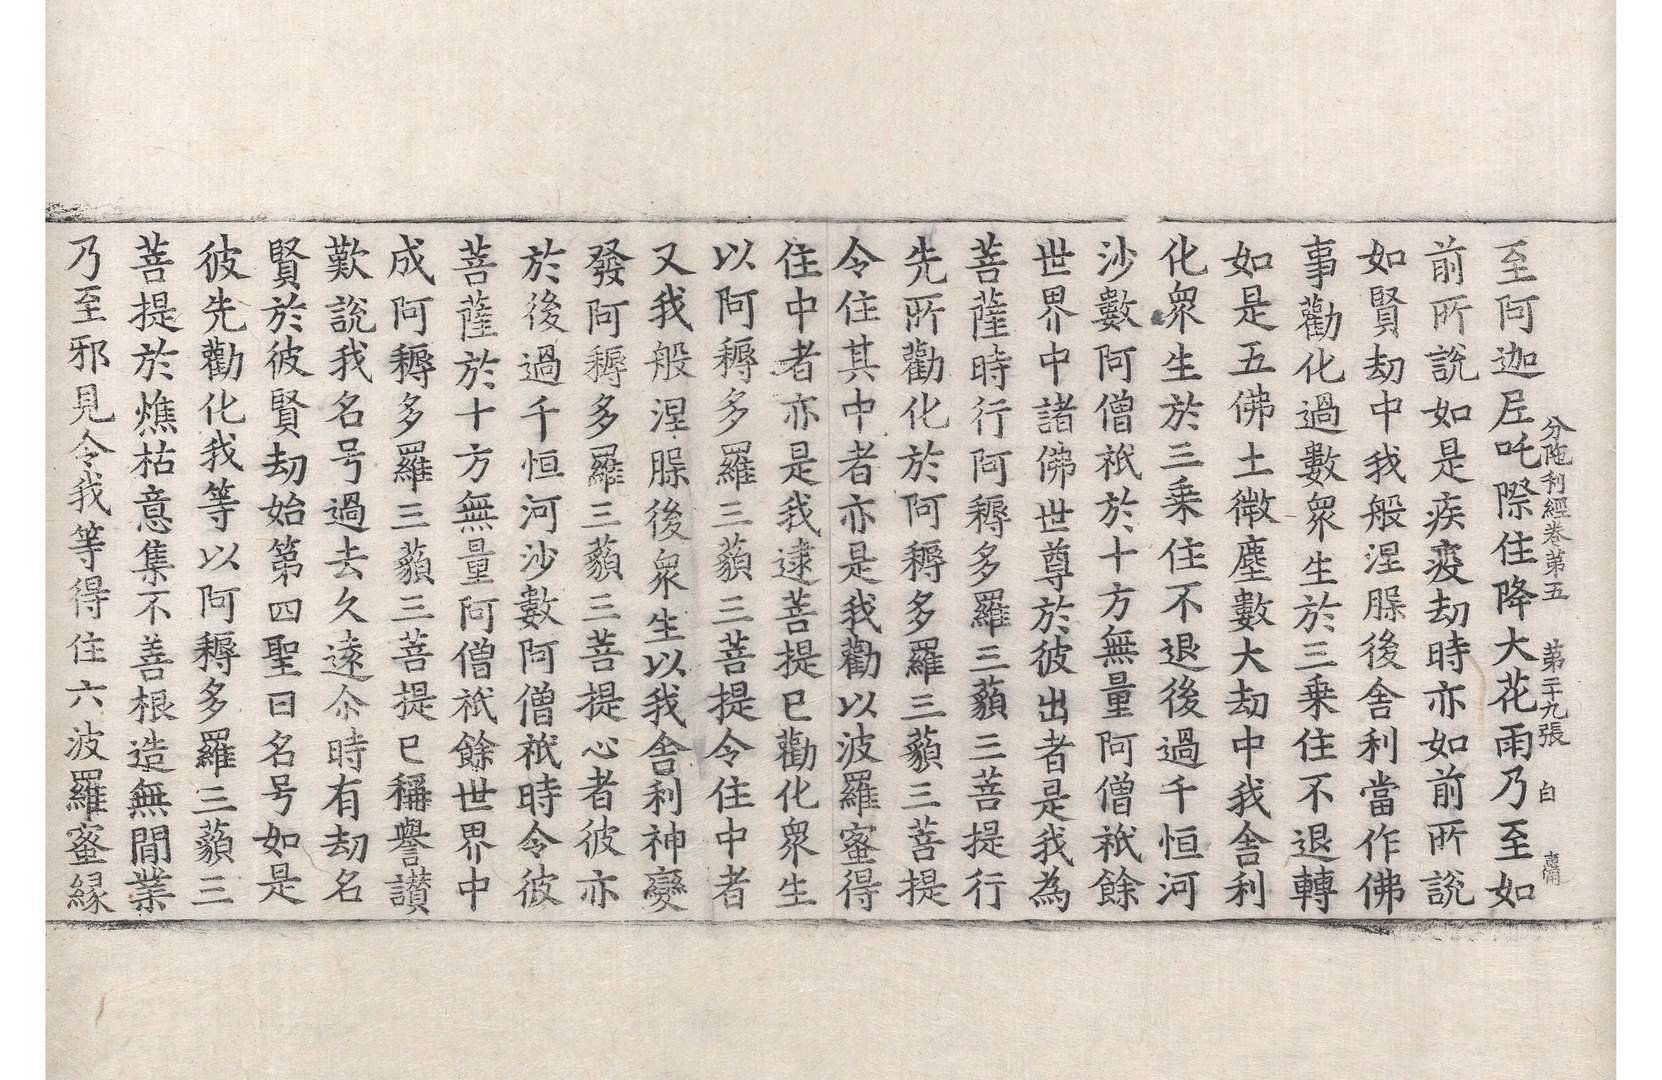 分陁利經卷第五　第二十九張　白
至阿迦尼吒際住降大花雨乃至如
前所說如是疾疫劫時亦如前所說
如賢劫中我般涅腂後舍利當作佛
事勸化過數衆生於三乘住不退轉
如是五佛土微塵數大劫中我舍利
化衆生於三乘住不退後過千恒河
沙數阿僧祇於十方無量阿僧祇餘
世界中諸佛世尊於彼出者是我為
菩薩時行阿耨多羅三藐三菩提行
先所勸化於阿耨多羅三藐三菩提
令住其中者亦是我勸以波羅蜜得
住中者亦是我逮菩提已勸化衆生
以阿耨多羅三藐三菩提令住中者
又我般涅腂後衆生以我舍利神變
發阿耨多羅三藐三菩提心者彼亦
於後過千恒河沙數阿僧祇時令彼
菩薩於十方無量阿僧祇餘世界中
成阿耨多羅三藐三菩提已稱譽讃
歎說我名号過去久遠尒時有劫名
賢於彼賢劫始第四聖日名号如是
彼先勸化我等以阿耨多羅三藐三
菩提於燋枯意集不善根造無間業
乃至邪見令我等得住六波羅蜜緣